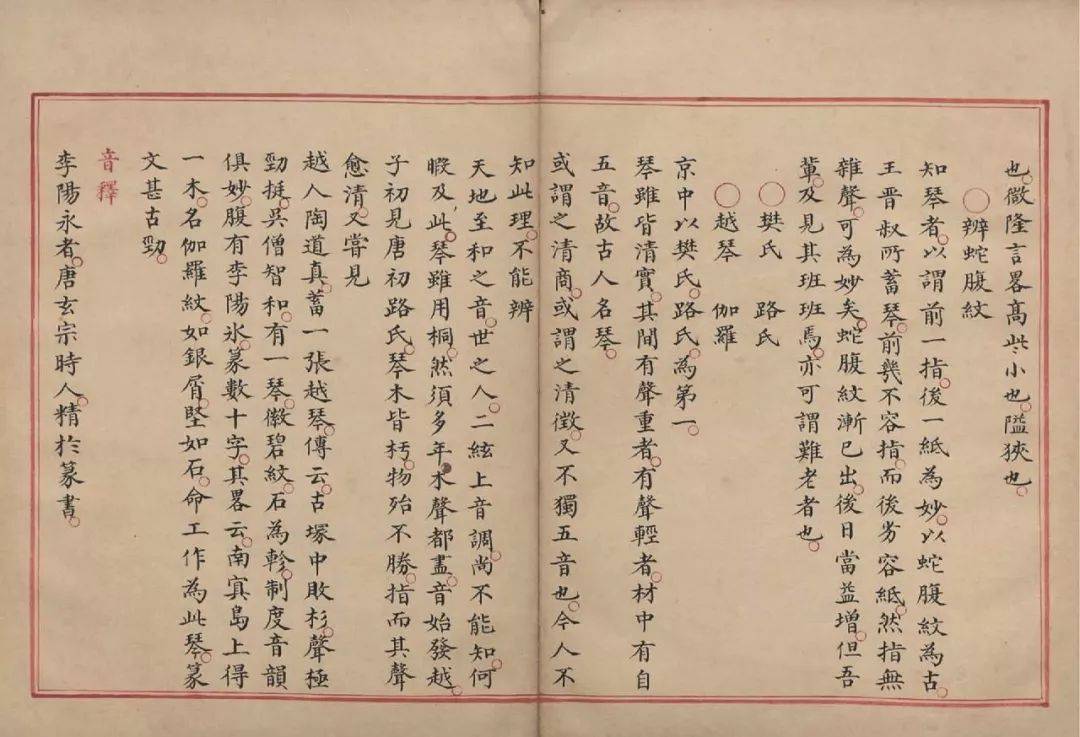 也。徽隆言畧髙些小也。隘狹也。
○辨蛇腹紋
知琴者。以謂前一指。後一紙為妙。以蛇腹紋為古。
王晋叔所蓄琴。前幾不容指。而後劣容紙。然指無
雜聲。可為妙矣。蛇腹紋漸已出。後日當益增。但吾
軰。及見其班班焉。亦可謂難老者也。
○樊氏 路氏
○越琴 伽羅
京中以樊氏。路氏。為第一。
琴雖皆清實。其間有聲重者。有聲輕者。材中有自
五音。故古人名琴。
或謂之清商。或謂之清徴。又不獨五音也。今人不
知此理。不能辨
天地至和之音。世之人。二絃上音調。尚不能知。何
暇及此。琴雖用桐。然須多年。木聲都盡。音始發越。
子初見唐初路氏。琴木皆朽。物殆不勝。指而其聲
愈清。又甞見
越人陶道真。蓄一張越琴。傳云。古塚中敗杉。聲極
勁挺。吳僧智和。有一琴。徽碧紋。石為軫。制度音韻
俱妙。腹有李陽氷。篆數十字。其畧云。南寘島上得
一木。名伽羅紋。如銀屑。堅如石。命工作為此琴。篆
文甚古勁。
音釋
李陽永者。唐玄宗時人。精於篆書。